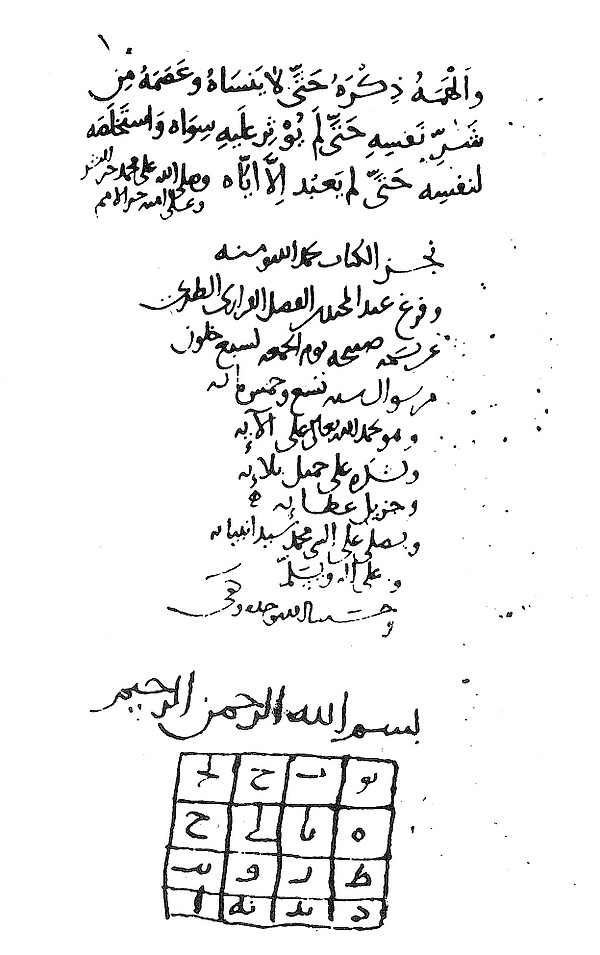 ١
وَأَلْهَمَهُ ذِكْرَهُ حَتَّى لا يَنسَاهُ وَعَصَمَهُ مِن
شَرِّ نَفسِهِ حَتَّى لَم يُوثِر عَلَيهِ سِوَاه وَاستَخلَصَه
لنفسِه حَتَّى لم يَعبُد اِلَّا ايَّاه وصلى الله على محمد خير البشر
وعلى امته خير الامم
نجز الكتاب بحمد الله ومنه
وفرغ عبد المجيد بن الفضل الفراوي الطبري
عن نسخه صبيحه يوم الجمعه لسبع خلون
من شوال سنه تسع وخمس مائه
وهو يحمد الله تعالى على آلائه
ويشكره على جميل بلائه
وجزيل عطائه
ويصلي على النبي محمد سيد انبيائه
وعلى آله ويسلم
وحسبنا الله وحده وكفى
بسم الله الرحمن الرحيم
يو ب ج يج
ه يا ي ح
ط ز و يب
د يد يه ا